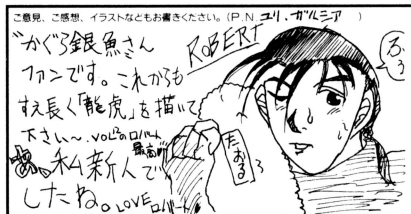 ご意見、ご感想、イラストなどもお書きください。(P.N.ユリ・ガルシア)
"かぐろ銀魚さん
ファンです。これからも
すえ長く「龍虎」を描いて
下さい〜、VOL2のロバート
最高!!
あ、私新人で
したね。LOVEロバート
ROBERT
たおる
ふう